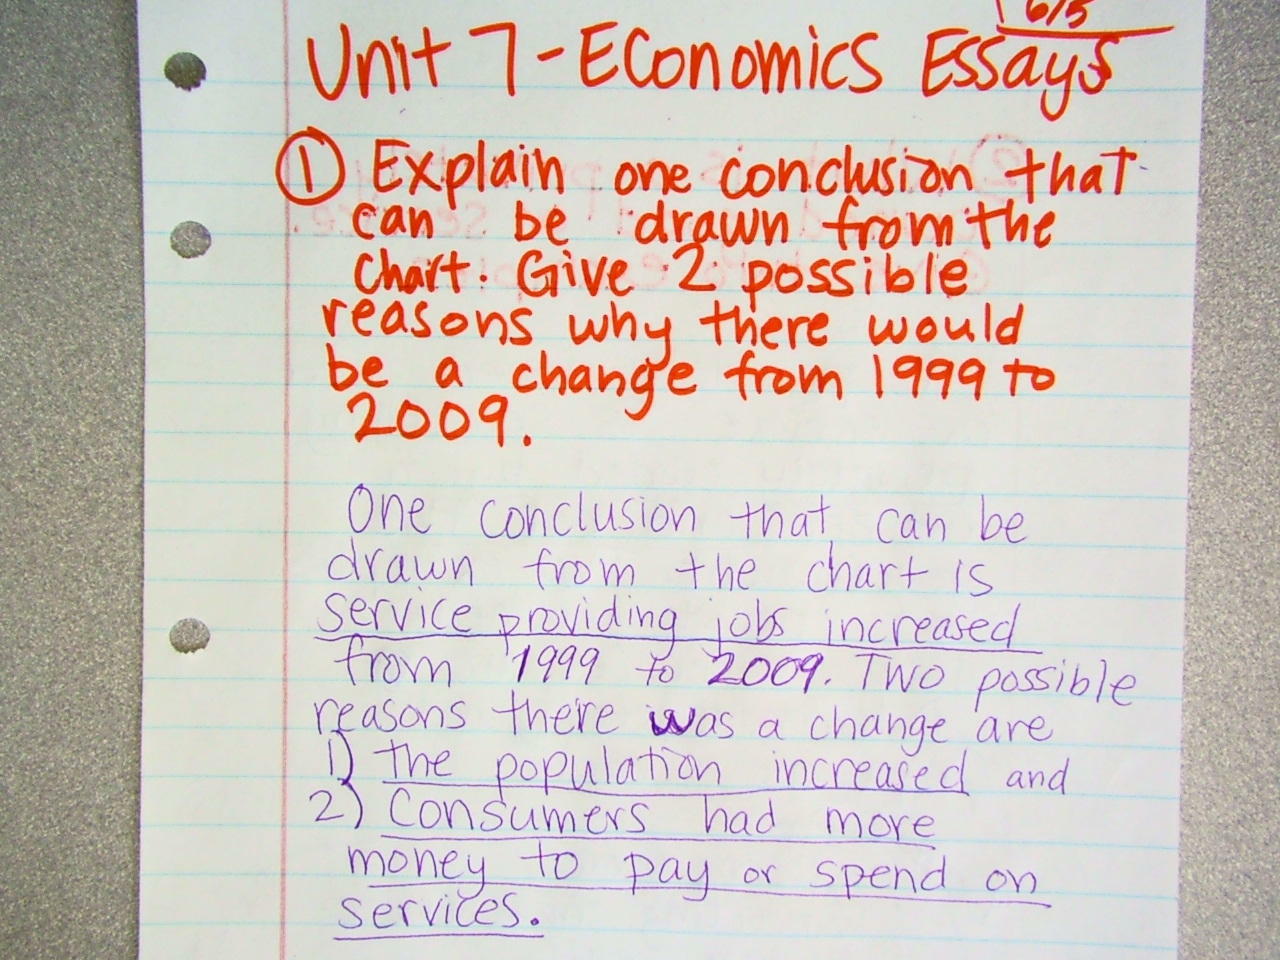 6/5
Unit 7 - Economics Essays
① Explain one conclusion that
can be drawn from the
chart. Give 2 possible
reasons why there would
be a change from 1999 to
2009.
One conclusion that can be
drawn from the chart is
service providing jobs increased
from 1999 to 2009. Two possible
reasons there was a change are
1) the population increased and
2) Consumers had more
money to pay or spend on
services.